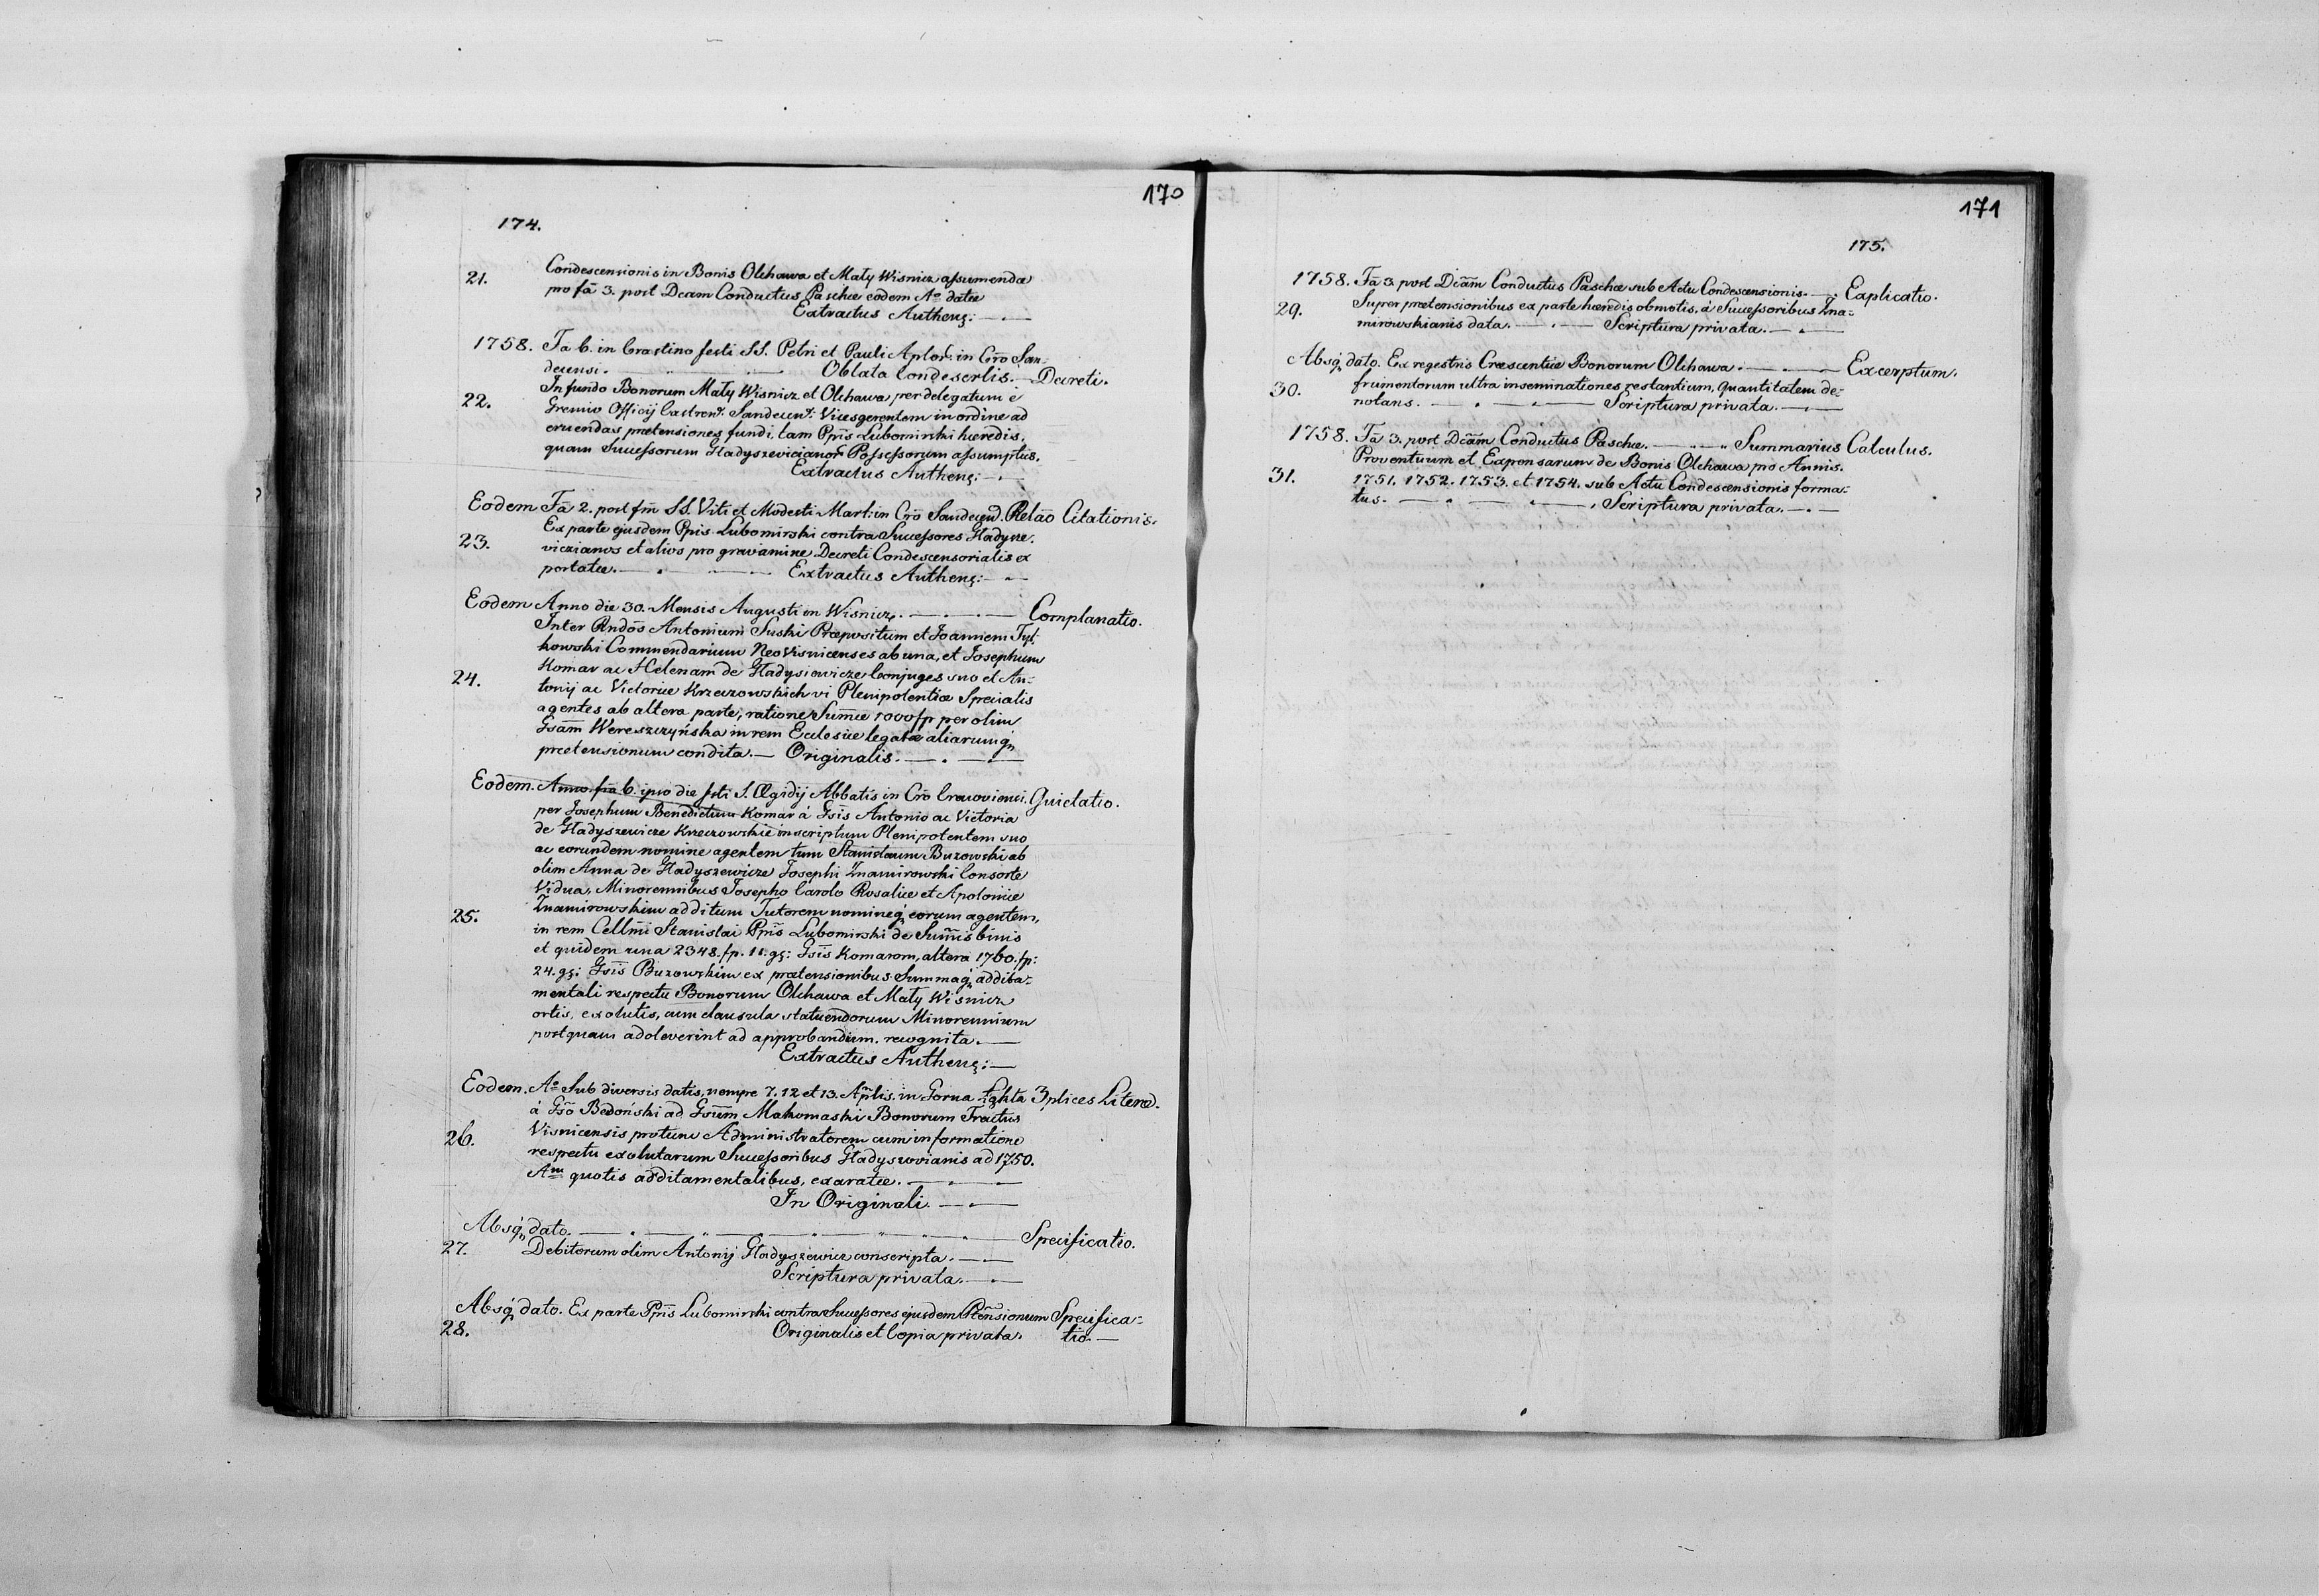 170
174.
21. Condescensionis in Bonis Olchawa et Mały Wisnicz assumenda
pro fã 3. post Dcam Conductus Paschæ eodem Aº datæ
Extractus Authenꝫ:
1758. Fã 6. in Crastino festi SS. Petri et Pauli Aplor: in Cro San-
decensi. Oblata Condescrlis. Decreti.
In fundo Bonorum Mały Wisnicz et Olchawa per delegatum e
22. Gremio Officij Castrens. Sandecens: Vicesgerentem in ordine ad
eruendas prætensiones fundi, tam Ppis Lubomirski hæredis,
quam Successorum Gładyszevicianor Possessorum assumptus.
Extractus Authenꝫ:
Eodem Fã 2. post fm SS. Viti et Modesti Mart: in Cro Sandecen. Relão Citationis.
Ex parte ejusdem Ppis Lubomirski contra Successores Gładysze-
23. viczianos et alios pro gravamine Decreti Condescensorialis ex
portatæ. Extractus Authenꝫ:
Eodem Anno die 30. Mensis Augusti in Wisnicz. Complanatio.
Inter Rndos Antonium Suski Præpositum et Joannem Tyl-
kowski Commendarium Neo Visnicenses ab una, et Josephum
Komar ac Helenam de Gładysiewicze Conjuges suo et An-
24. tonij ac Victoriæ Krzeczowskich vi Plenipotentiæ Specialis
agentes ab altera parte, ratione Summæ 1000 fp per olim
Gsam Wereszczyńska in rem Eclesiæ legatæ aliarumq,
prætensionum condita. Originalis.
Eodem. Anno fia 6. ipso die fsti S. Ægidij Abbatis in Cro Cracoviensi. Quietatio.
per Josephum Benedictum Komar á Gsis Antonio ac Victoria
de Gładyszewicze Krzeczowskie inscriptum Plenipotentem suo
ac eorundem nomine agentem tum Stanislaum Buzowski ab
olim Anna de Gładyszewicze Josephi Znamirowski Consorte
Vidua, Minorennibus Josepho Carolo Rosaliæ et Apoloniæ
Znamirowskim additum Tutorem nomineq, eorum agentem,
25. in rem Cellmi Stanislai Ppis Lubomirski de Summis binis
et quidem una 2348. fp. 11. gꝫ: Gsis Komarom, altera 1760. fp:
24. gꝫ: Gsis Buzowskim ex prætensionibus Summaq, addita-
mentali respectu Bonorum Olchawa et Mały Wisnicz
ortis, exolutis, cum clausula statuendorum Minorennium
postquam adoleverint ad approbandum, recognita.
Extractus Authenꝫ:
Eodem. Aº Sub diversis datis, nempe 7. 12 et 13. Aplis. in Gorna Łghta 3plices Literæ.
á Gso Bedoński ad Gsum Makomaski Bonorum Tractus
26. Visnicensis protunc Administratorem cum informatione
respectu exolutarum Successoribus Gładyszovianis ad 1750.
Am quotis additamentalibus, exaratæ.
In Originali.
Absq, dato. Specificatio.
27. Debitorum olim Antonij Gładyszewicz conscripta.
Scriptura privata.
Absq, dato. Ex parte Ppis Lubomirski contra Successores ejusdem Ptensionum Specifica-
28. Originalis et Copia privata. tio.
171
175.
1758. Fã 3. post Dcãm Conductus Paschæ sub Actu Condescensionis. Explicatio.
29. Super prætensionibus ex parte hæredis obmotis, á Successoribus Zna-
mirowskianis data. Scriptura privata.
Absq, dato. Ex regestris Crescentiæ Bonorum Olchawa. Excerptum.
30. frumentorum ultra inseminationes restantium, quantitatem de-
notans. Scriptura privata.
1758. Fã 3. post Dcãm Conductus Paschæ. Summarius Calculus.
Proventuum et Expensarum de Bonis Olchawa pro Annis.
31. 1751. 1752. 1753. et 1754. sub Actu Condescensionis forma-
tus. Scriptura privata.